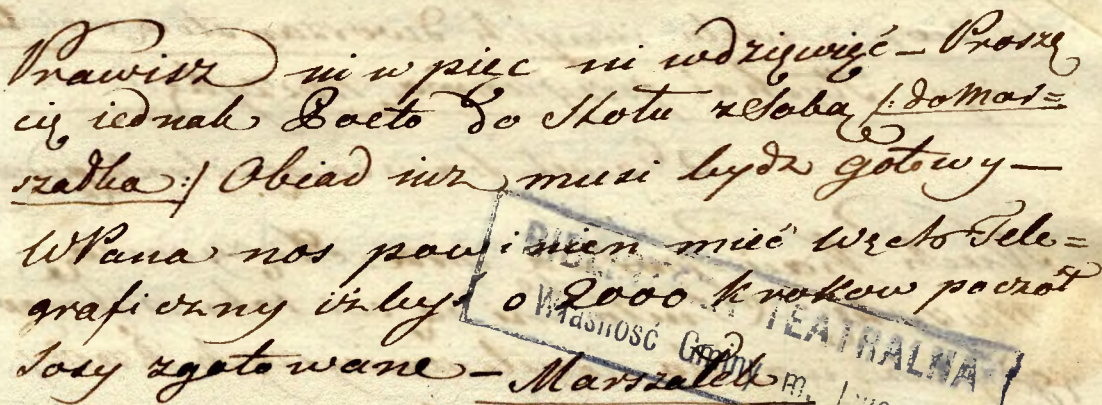 Prawisz ni w pięc ni wdzięwięć – Proszę
cię iednak Poeto do Stołu z Sobą /: do Mar=
szadka :/ Obiad iuz musi bydz gotowy –
WPana nos powinien mieć Węch Tele=
graficzny iżbyś o 2000 krokow poczół
Sosy zgotowane – Marszalek
BIBLIOTEKA TEATRALNA
Własność Gminy m.